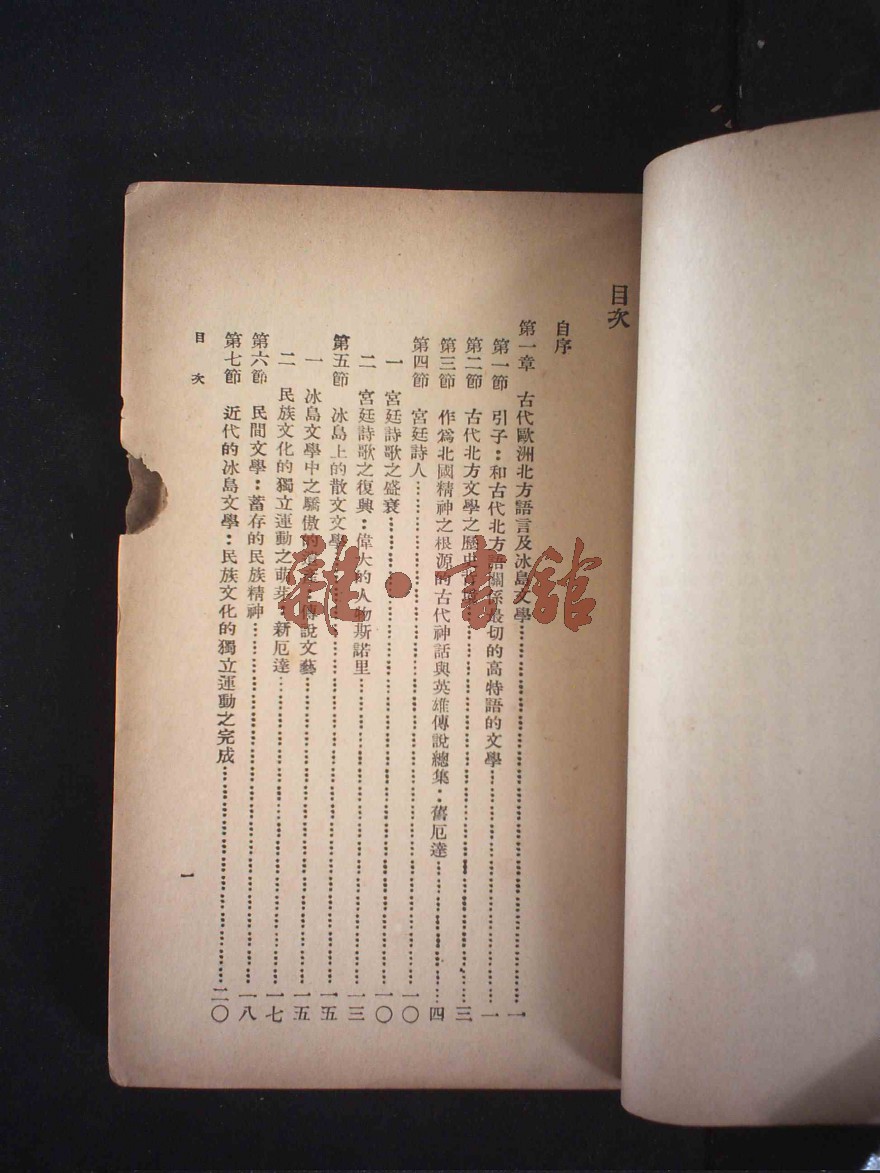 目次
自序
第一章 古代歐洲北方語言及冰島文學……一
第一節 引子：和古代北方語關係最切的高特語的文學……一
第二節 古代北方文學之歷史……三
第三節 作爲北國精神之根源的古代神話與英雄傳說總集：舊厄達……四
第四節 宮廷詩人……一〇
一 宮廷詩歌之盛衰……一〇
二 宮廷詩歌之復興：偉大的人物斯諾里……一三
第五節 冰島上的散文文學……一五
一 冰島文學中之驕傲的 傳說文藝……一五
二 民族文化的獨立運動之萌芽：新厄達……一七
第六節 民間文學：蓄存的民族精神……一八
第七節 近代的冰島文學：民族文化的獨立運動之完成……二〇
目次
一
雜·書館